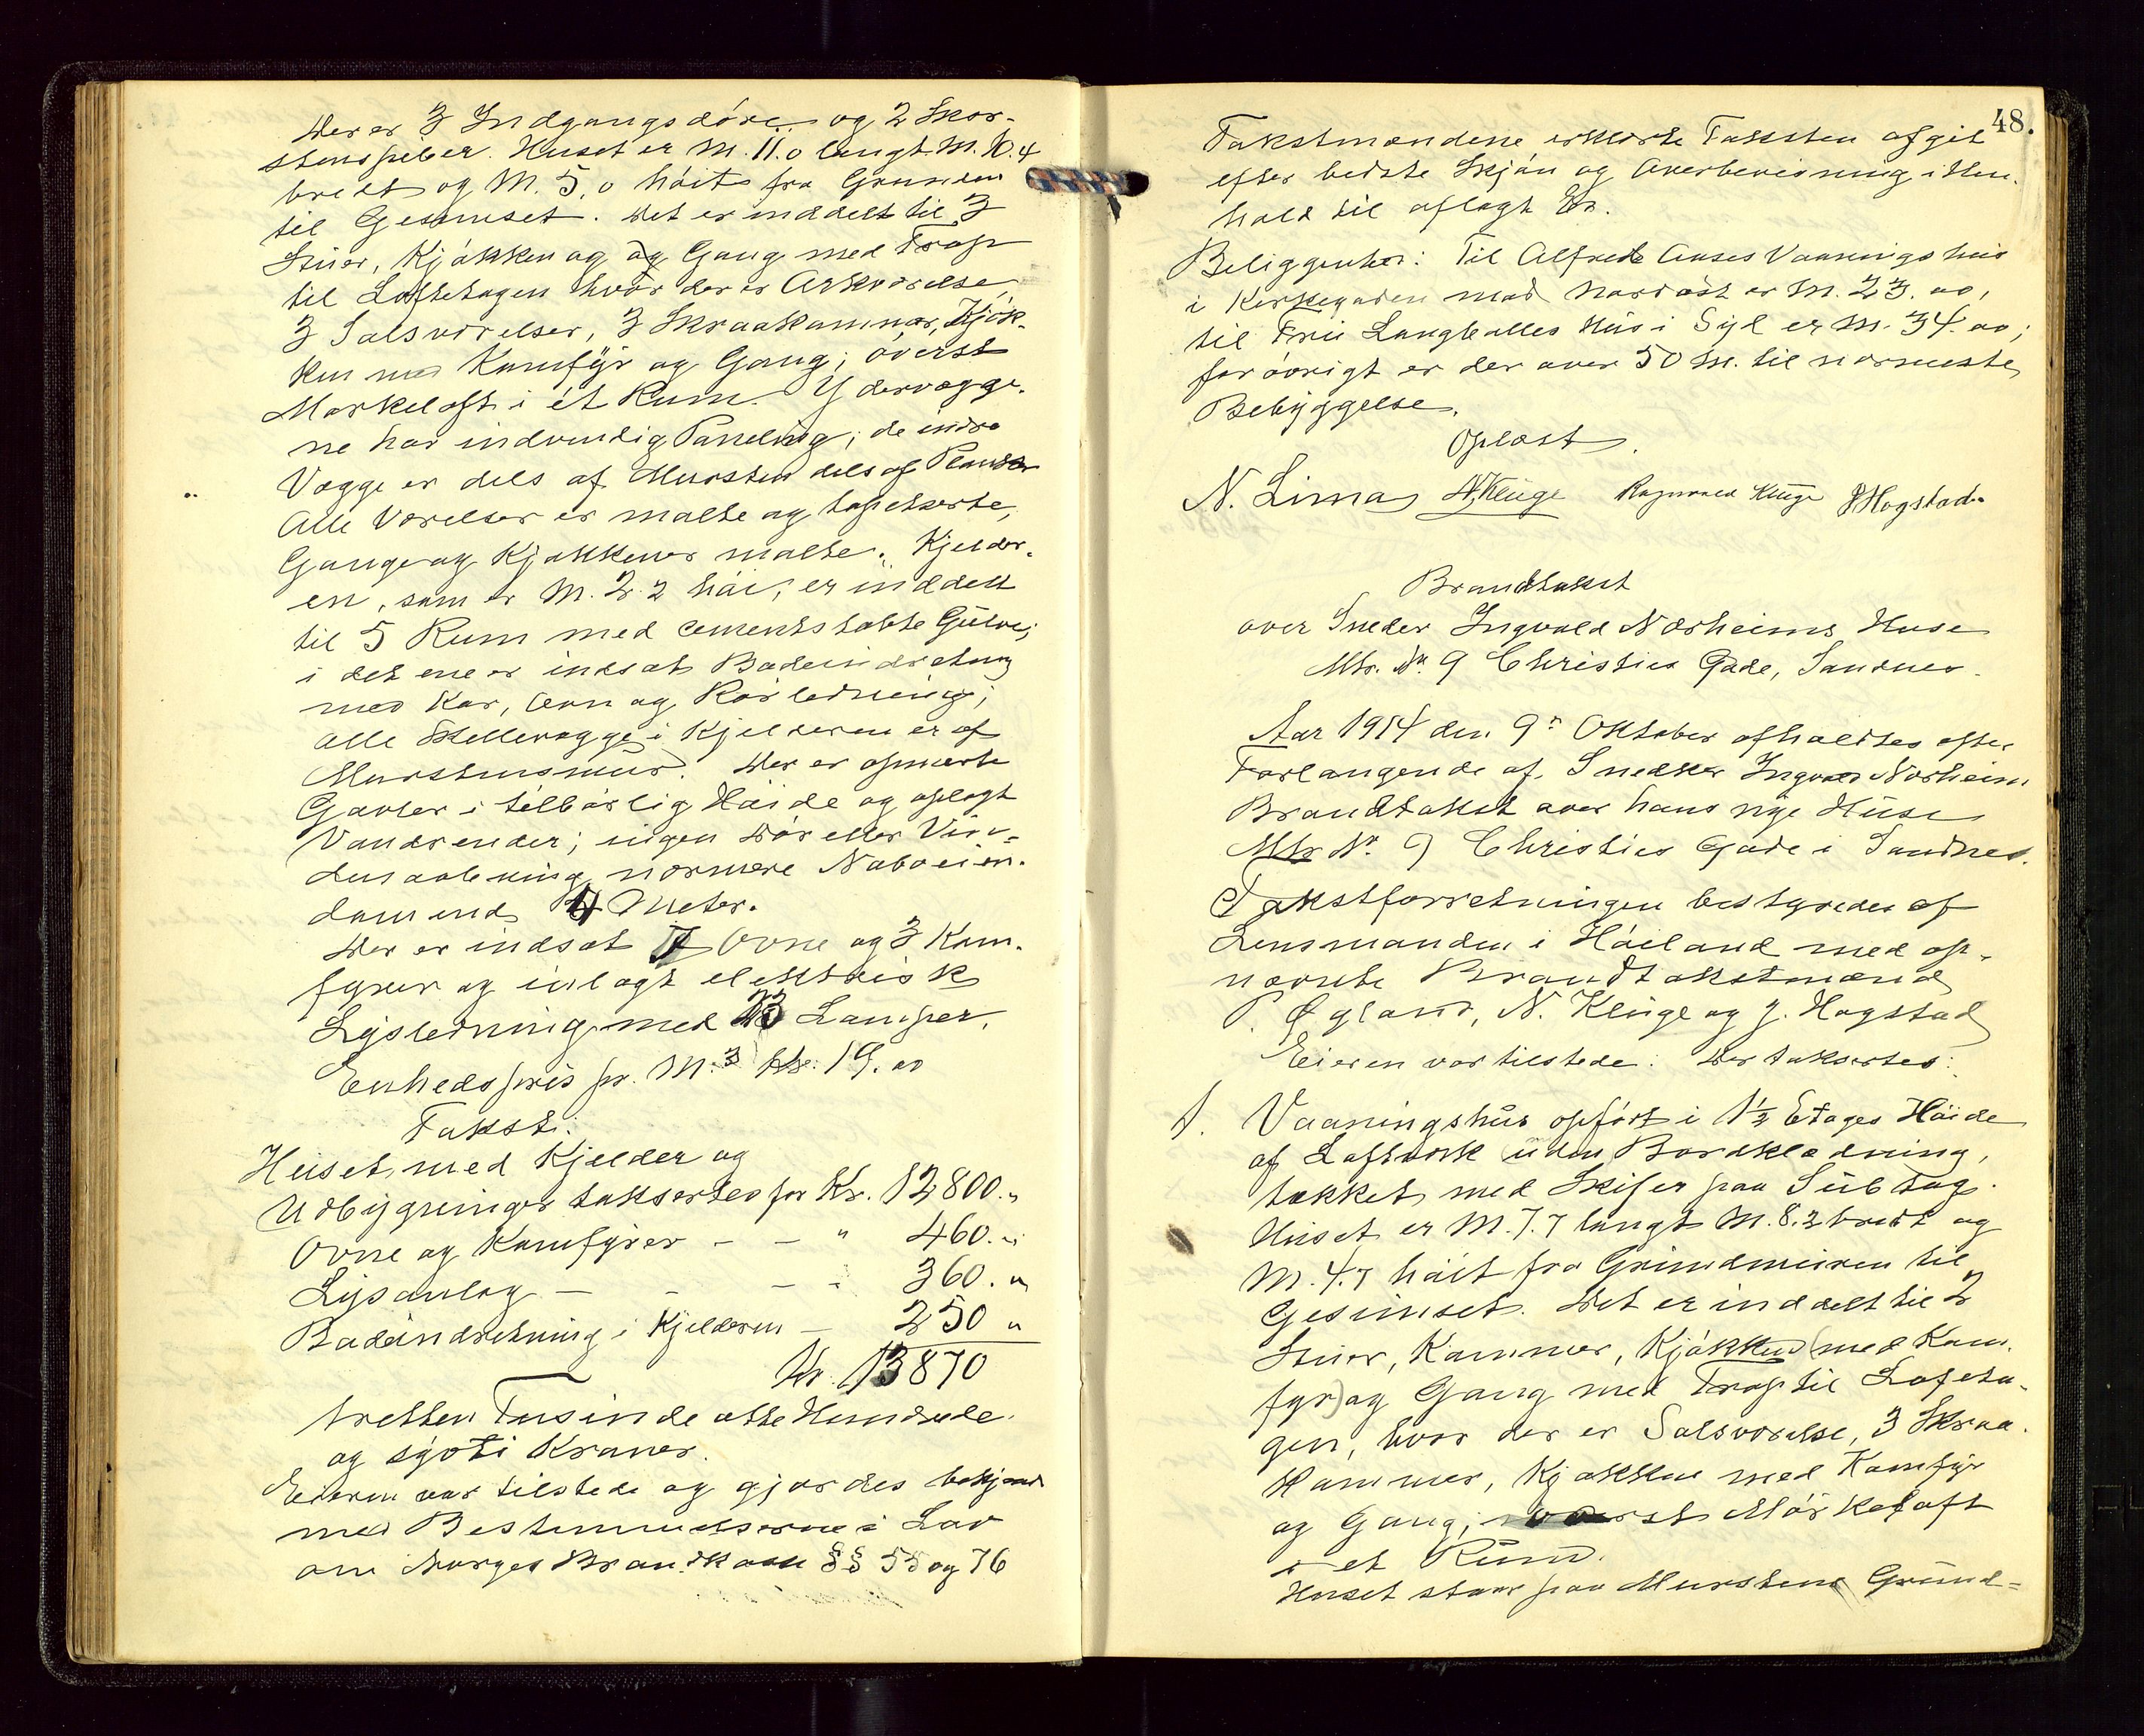 Der er 3 Indgangsdöre og 2 Skor-
stenspiber. Huset er M. 11.0 langt M. 10.4
bredt og M. 5,0 höit fra Grunden
til Gesimset. Det er inddelt til 3
Stuer, Kjökken og og Gang med Trap
til Loftetagen hvor der er Arkværelse,
3 Salsværelser, 3 Skraakammer, Kjök-
ken med Komfyr og Gang; överst
Mørkeloft i ét Rum. Ydervægge-
ne har indvendig Paneling; de indre
Vægge er dels af Mursten dels af Planker
Alle Værelser er malte og tapetserte,
Gange og Kjøkkener malte. Kjelder-
en, som er M. 2.2 höi, er inddelt
til 5 Rum med cementstøbte Gulve;
i det ene er indsat Badeindretning
med Kar, Ovn og Rörledning;
alle Skillevægge i Kjelderen er af
Murstensmur. Der er opmurte
Gavler i tilbörlig Höide og oplagt
Vandrender; ingen Dör eller Vin-
duesaabning nærmere Naboeien-
dom end 4 Meter.
Der er indsat 7 Ovne og 3 Kom-
fyrer og inlagt elektrisk
Lysledning med 23 Lamper.
Enhedspris pr. M.3 Kr. 19.00
Takst:
Huset med Kjelder og
Udbygninger takseres for Kr. 12800."
Ovne og Komfyrer - - " 460."
Lysanlæg - - - - 360. "
Badeindretning i Kjelderen - 250 "
Kr. 13870
tretten Tusinde otte Hundrede
og sytti Kroner.
Eieren var tilstede og gjordes bekjendt
med Bestemmelserne i Lov
om Norges Brandkasse §§ 55 og 76
48.
Takstmændene erklærte Taksten afgit
efter bedste Skjön og Overbevisning i Hen-
hold til aflagt Ed.
Beliggenhed: Til Alfred Auses Vaaningshus
i Kirkegaden mod Nordöst er M. 23.00,
til Fru Langballes Hus i Syd er M. 34.00;
forövrigt er der over 50 M. til nærmeste
Bebyggelse.
Oplæst.
N. Lima N. Kluge Ragnvald Kluge J Hogstad
Brandtakst
over Sneder Ingvald Nærheims Huse
Mtr. Nr. 9 Christies Gade, Sandnes.
Aar 1914 den 9de Oktober afholdtes efter
Forlangende af Snedker Ingvald Nærheim
Brandtakst over hans nye Huse
Mtr Nr. 9 Christies Gade i Sandnes.
Takstforretningen bestyredes af
Lensmanden i Höiland med op-
nævnte Brandtakstmænd
P. Øgland, N. Kluge og J. Hogstad
Eieren var tilstede. Der takseres:
1. Vaaningshus opfört i 1½ Etages Höide
af Laftverk uden Bordklædning,
tækket med Skifer paa Subtag.
Huset er M. 7.7 langt M. 8.2 bredt og
M. 4.7 höit fra Grundmuren til
Gesimset. Det er inddelt til 2
Stuer, Kammer, Kjökken (med Kom-
fyr) og Gang med Trap til Lofteta-
gen, hvor der er Salsværelse, 3 Skraa-
kammer, Kjøkken med Komfyr
og Gang; överst Mörkeloft
i et Rum.
Huset staar paa Murstens Grund=